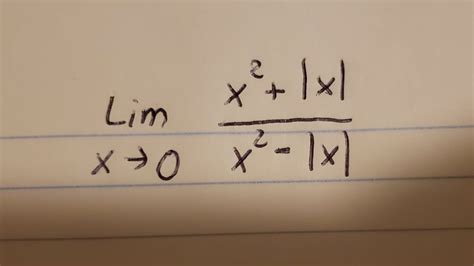 Lim x→0 (x² + |x|) / (x² - |x|)